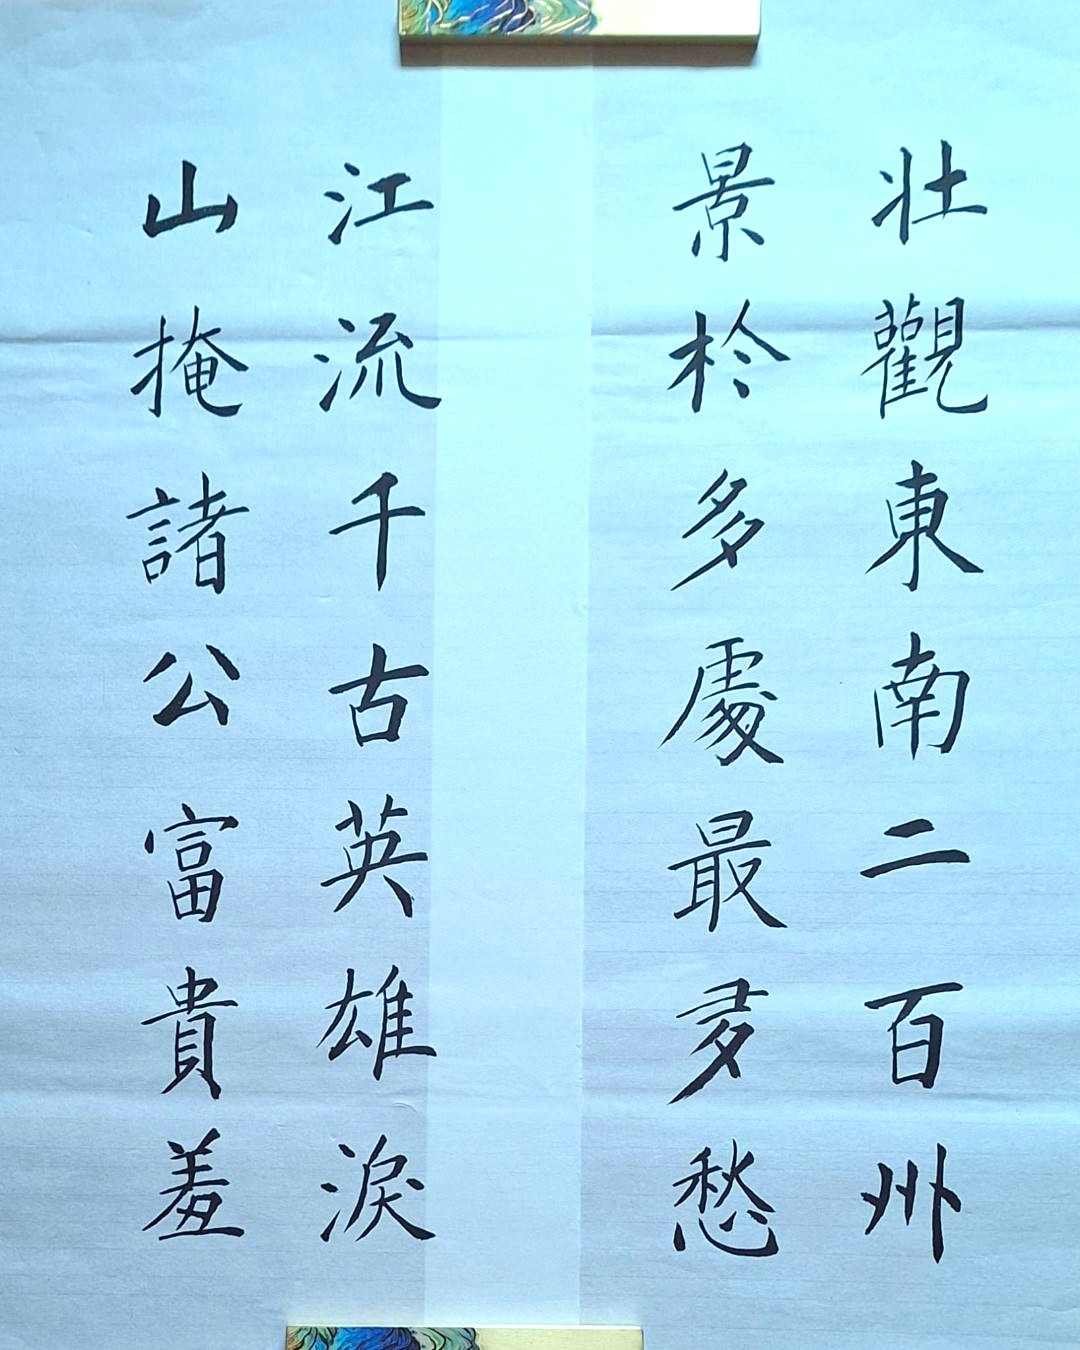 壯觀東南二百州
景於多處最多愁
江流千古英雄淚
山掩諸公富貴羞